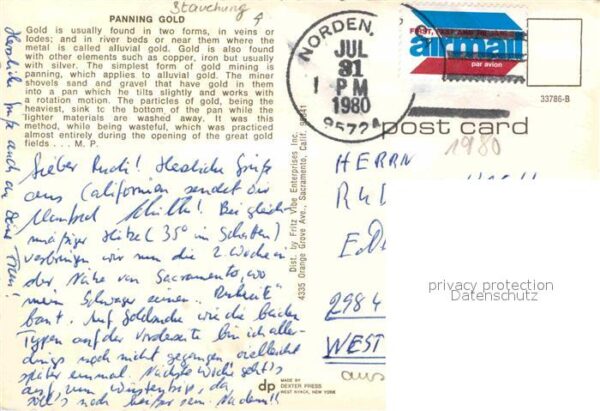 Stauchung
PANNING GOLD
Gold is usually found in two forms, in veins or
lodes; and in river beds or near them where the
metal is called alluvial gold. Gold is also found
with other elements such as copper, iron but usually
with silver. The simplest form of gold mining is
panning, which applies to alluvial gold. The miner
shovels sand and gravel that have gold in them
into a pan which he tilts slightly and works with
a rotation motion. The particles of gold, being the
heaviest, sink to the bottom of the pan while the
lighter materials are washed away. It was this
method, while being wasteful, which was practiced
almost entirely during the opening of the great gold
fields . . . M. P.
Herzliche Grüße auch an Deine Frau!
Lieber Rudi! Herzliche Grüße
aus Californien sendet Dir
Manfred! Bei gleich-
mäßiger Hitze (35° im Schatten)
verbringen wir nun die 2. Woche in
der Nähe von Sacramento, wo
mein Schwager seinen
baut. Auf Goldsuche wie die beiden
Typen auf der Vorderseite bin ich aller-
dings noch nicht gegangen vielleicht
später einmal. Nächste Woche geht's
auf zum Wüstentrip, da
soll's noch heißer sein.
Dist. by Fritz Vibe Enterprises Inc.
4335 Orange Grove Ave., Sacramento, Calif. 95841
dp
MADE BY
DEXTER PRESS
WEST NYACK, NEW YORK
NORDEN,
JUL
31
1 PM
1980
95724
FIRST CLASS MAIL
airmail
par avion
33786-B
post card
1980
HERRN
2984
WEST
aus
privacy protection
Datenschutz